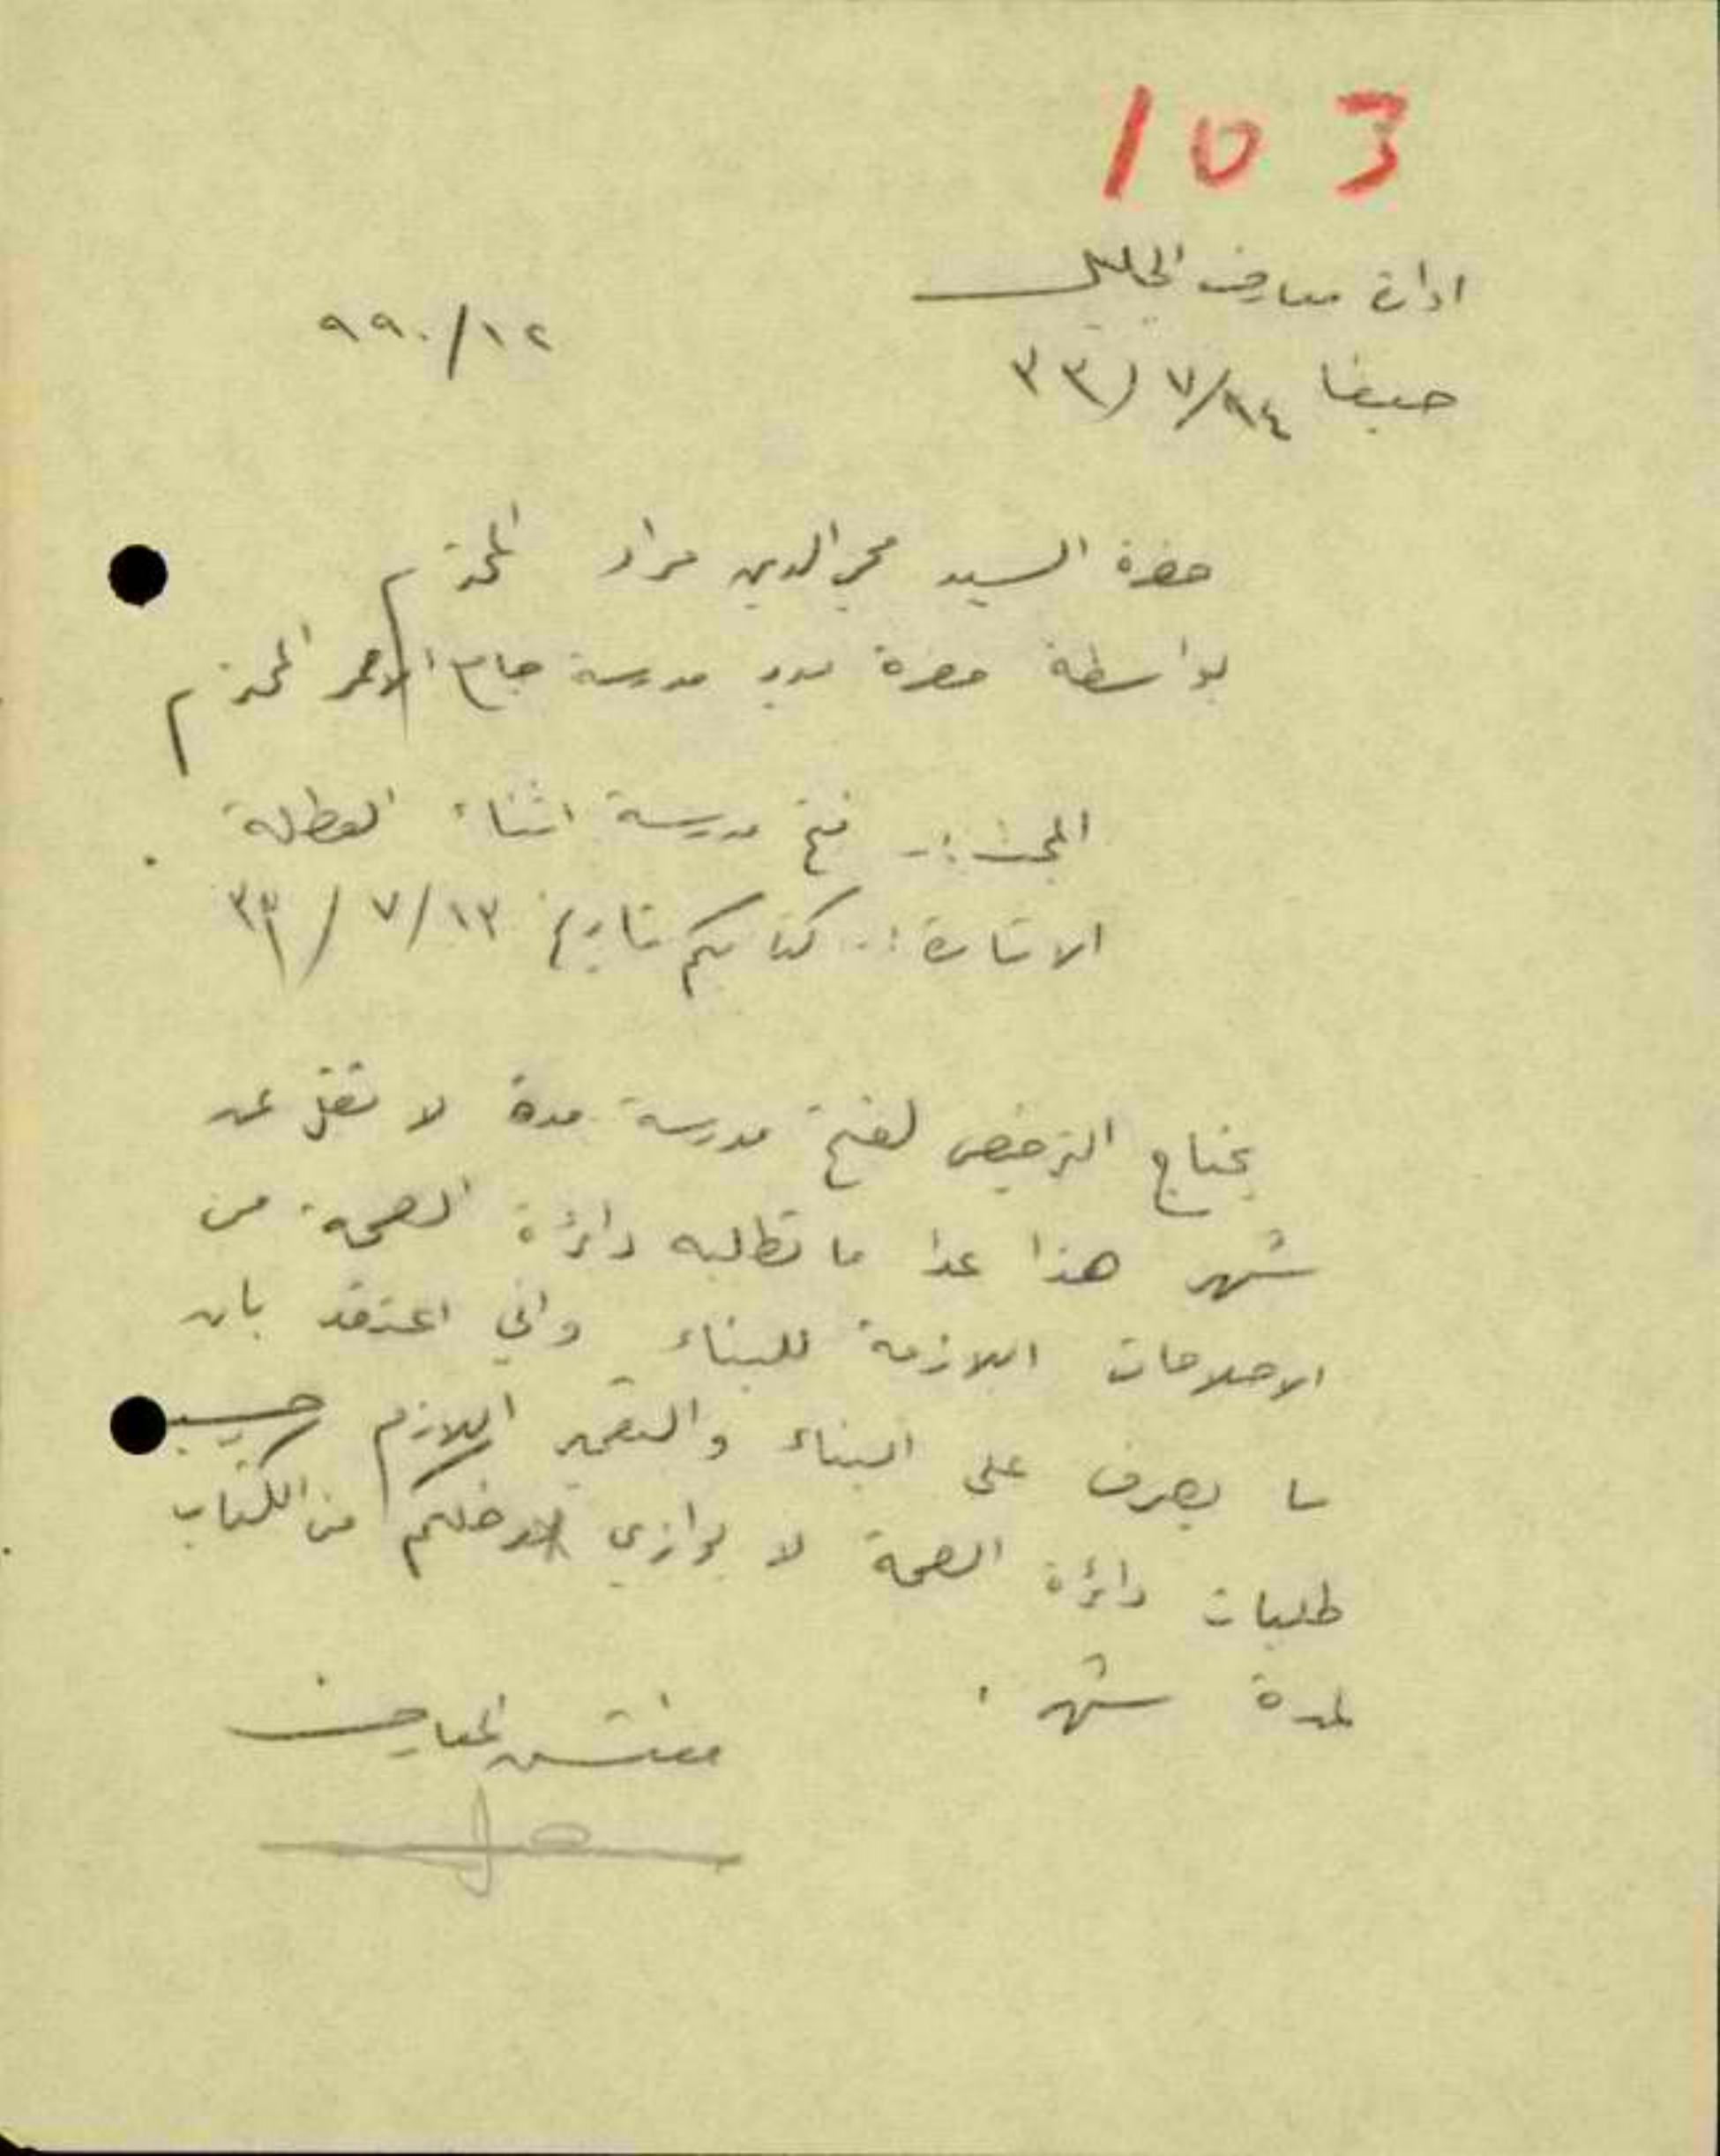 103
ادارة معارف الجليل
٩٩٠/١٢
حيفا ٣٣/٧/١٤
حضرة السيد محي الدين مراد المحترم
بواسطة حضرة مدير مدرسة جامع الاحمر المحترم
المبحث :- فتح مدرسة اثناء العطلة
الاشارة :- كتابكم تاريخ ٣٣/٧/١٣
يحتاج الترخيص لفتح مدرسة مدة لا تقل عن
شهر هذا عدا ما تطلبه دائرة الصحة من
الاصلاحات اللازمة للبناء واني اعتقد بان
ما يصرف على البناء والتعمير اللازم حسب
طلبات دائرة الصحة لا يوازي دخلكم من الكتاب
لمدة شهر .
مفتش المعارف